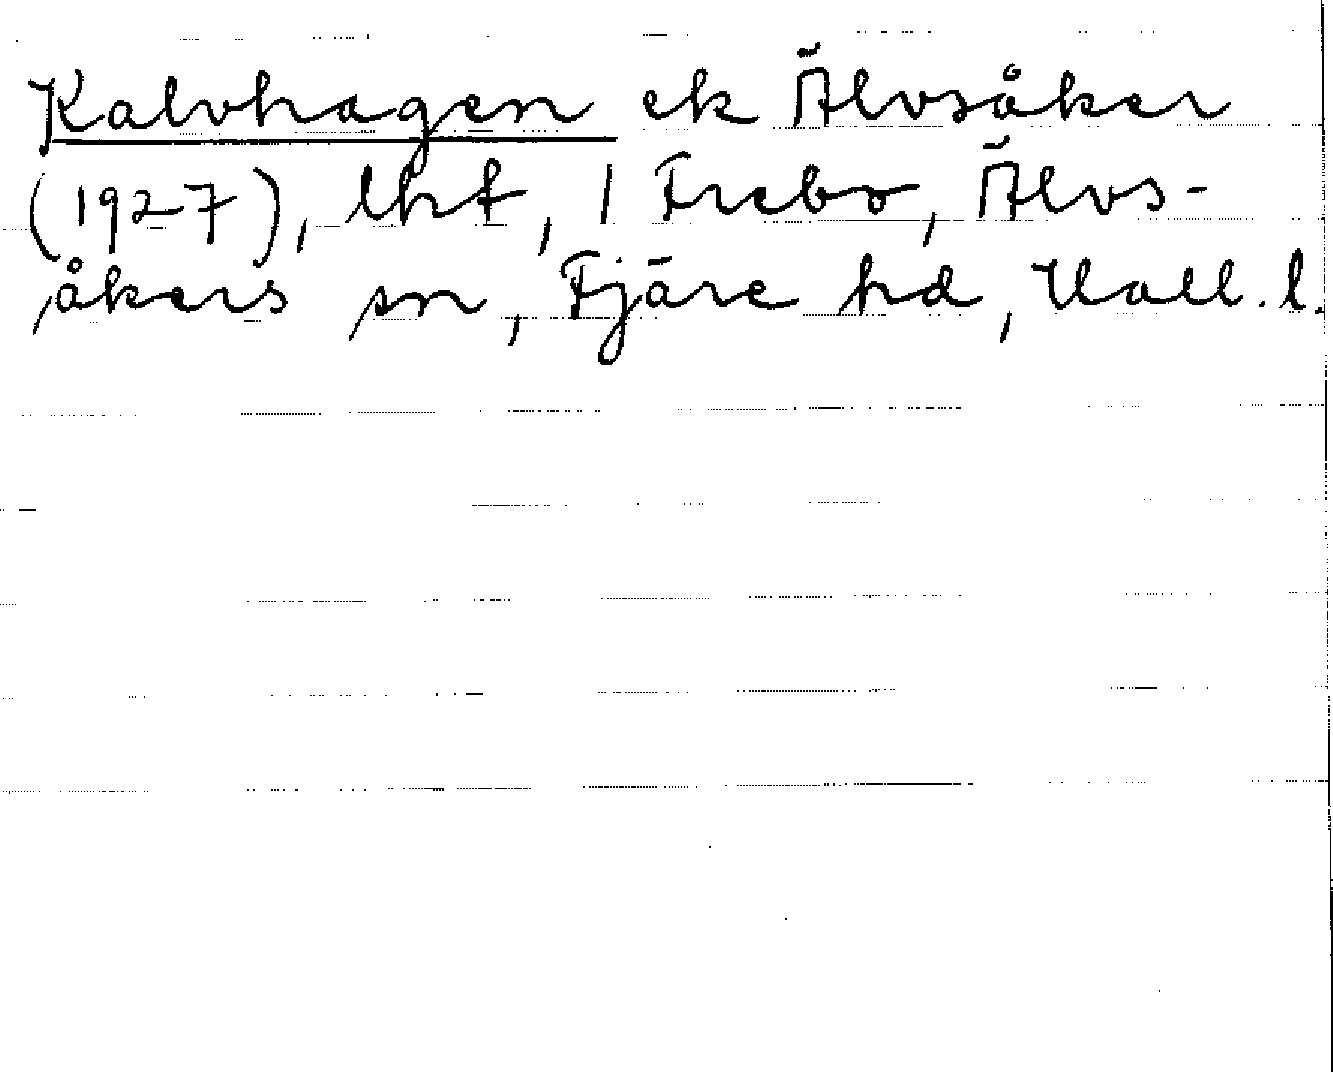 Kalvhagen ek Älvsåker
(1927), lht, 1 Frebo, Älvs-
åkers sn, Fjäre hd, Hall. l.